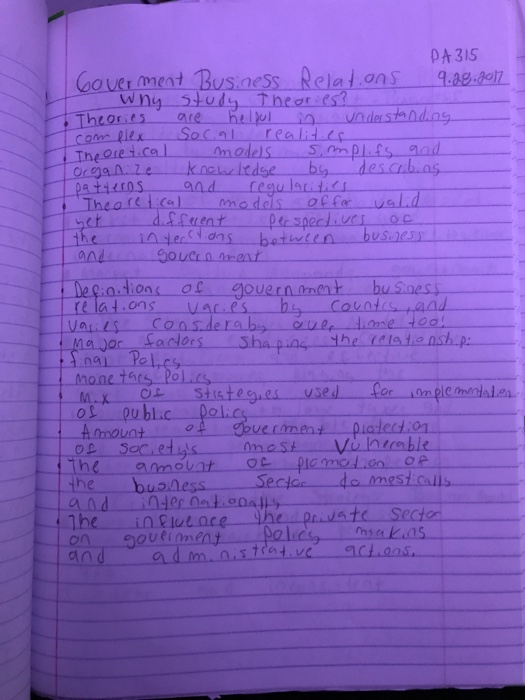 PA315
Goverment Business Relations 9.28.2017
Why study Theories?
• Theories are helpul in understanding
complex Social realities
• Theoretical models simplify and
organize knowledge by describing
patterns and regularities
• Theoretical models offer valid
yet different perspectives of
the interctions between business
and government
• Definitions of government business
relations varies by country, and
varies considerably over time too!
Major factors shaping the relationship:
• final Policy
Monetary Policy
• Mix of strategies used for implementation
of public Policy
• Amount of goverment protection
of society's most vulnerable
• The amount of promotion of
the business sector domestically
and internationally
• The influence the private sector
on goverment policy making
and administrative actions.